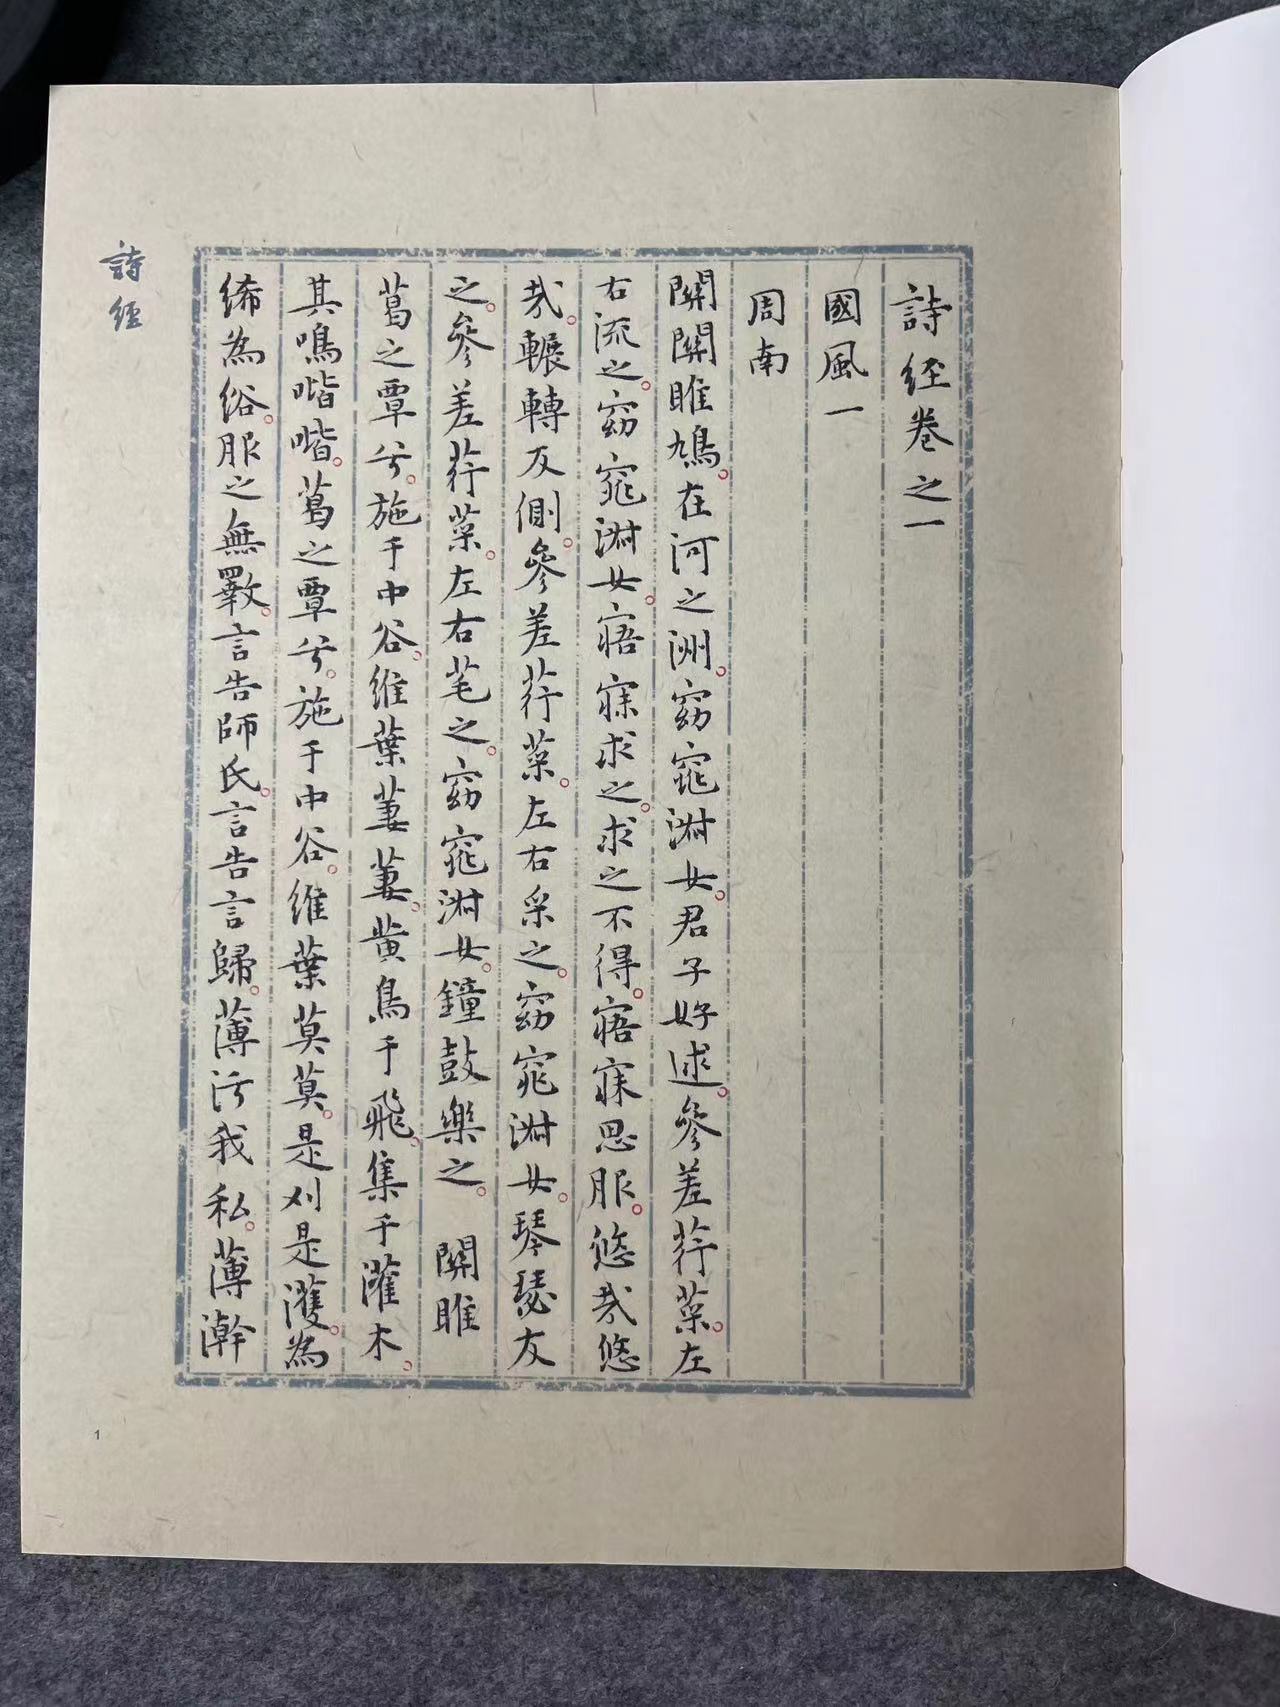 詩經卷之一
國風一
周南
關關雎鳩。在河之洲。窈窕淑女。君子好逑。參差荇菜。左
右流之。窈窕淑女。寤寐求之。求之不得。寤寐思服。悠哉悠
哉。輾轉反側。參差荇菜。左右采之。窈窕淑女。琴瑟友
之。參差荇菜。左右芼之。窈窕淑女。鐘鼓樂之。 關雎
葛之覃兮。施于中谷。維葉萋萋。黃鳥于飛。集于灌木。
其鳴喈喈。葛之覃兮。施于中谷。維葉莫莫。是刈是濩。為
絺為綌。服之無斁。言告師氏。言告言歸。薄污我私。薄澣
詩經
1